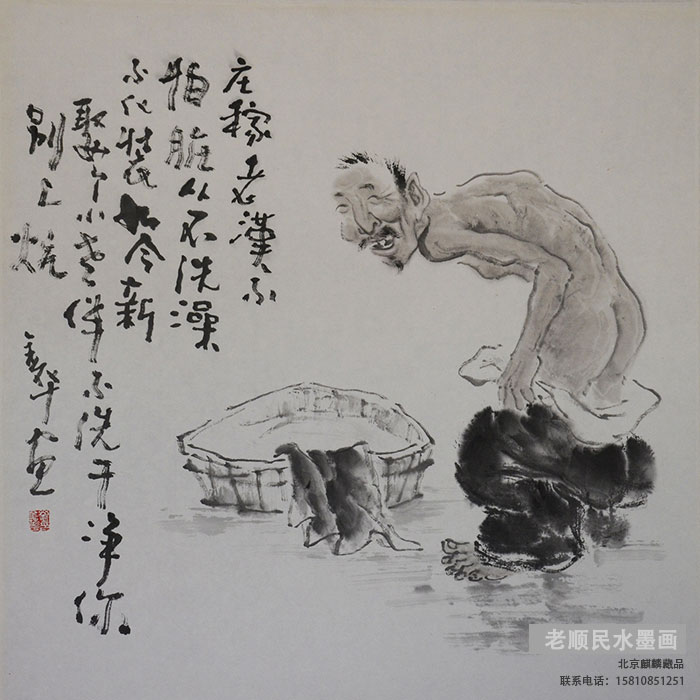 庄稼老漢不
怕脏从不洗澡
不化装如今新
娶个小老伴不洗干净你
别上炕
画
老顺民水墨画
北京麒麟藏品
联系电话：15810851251